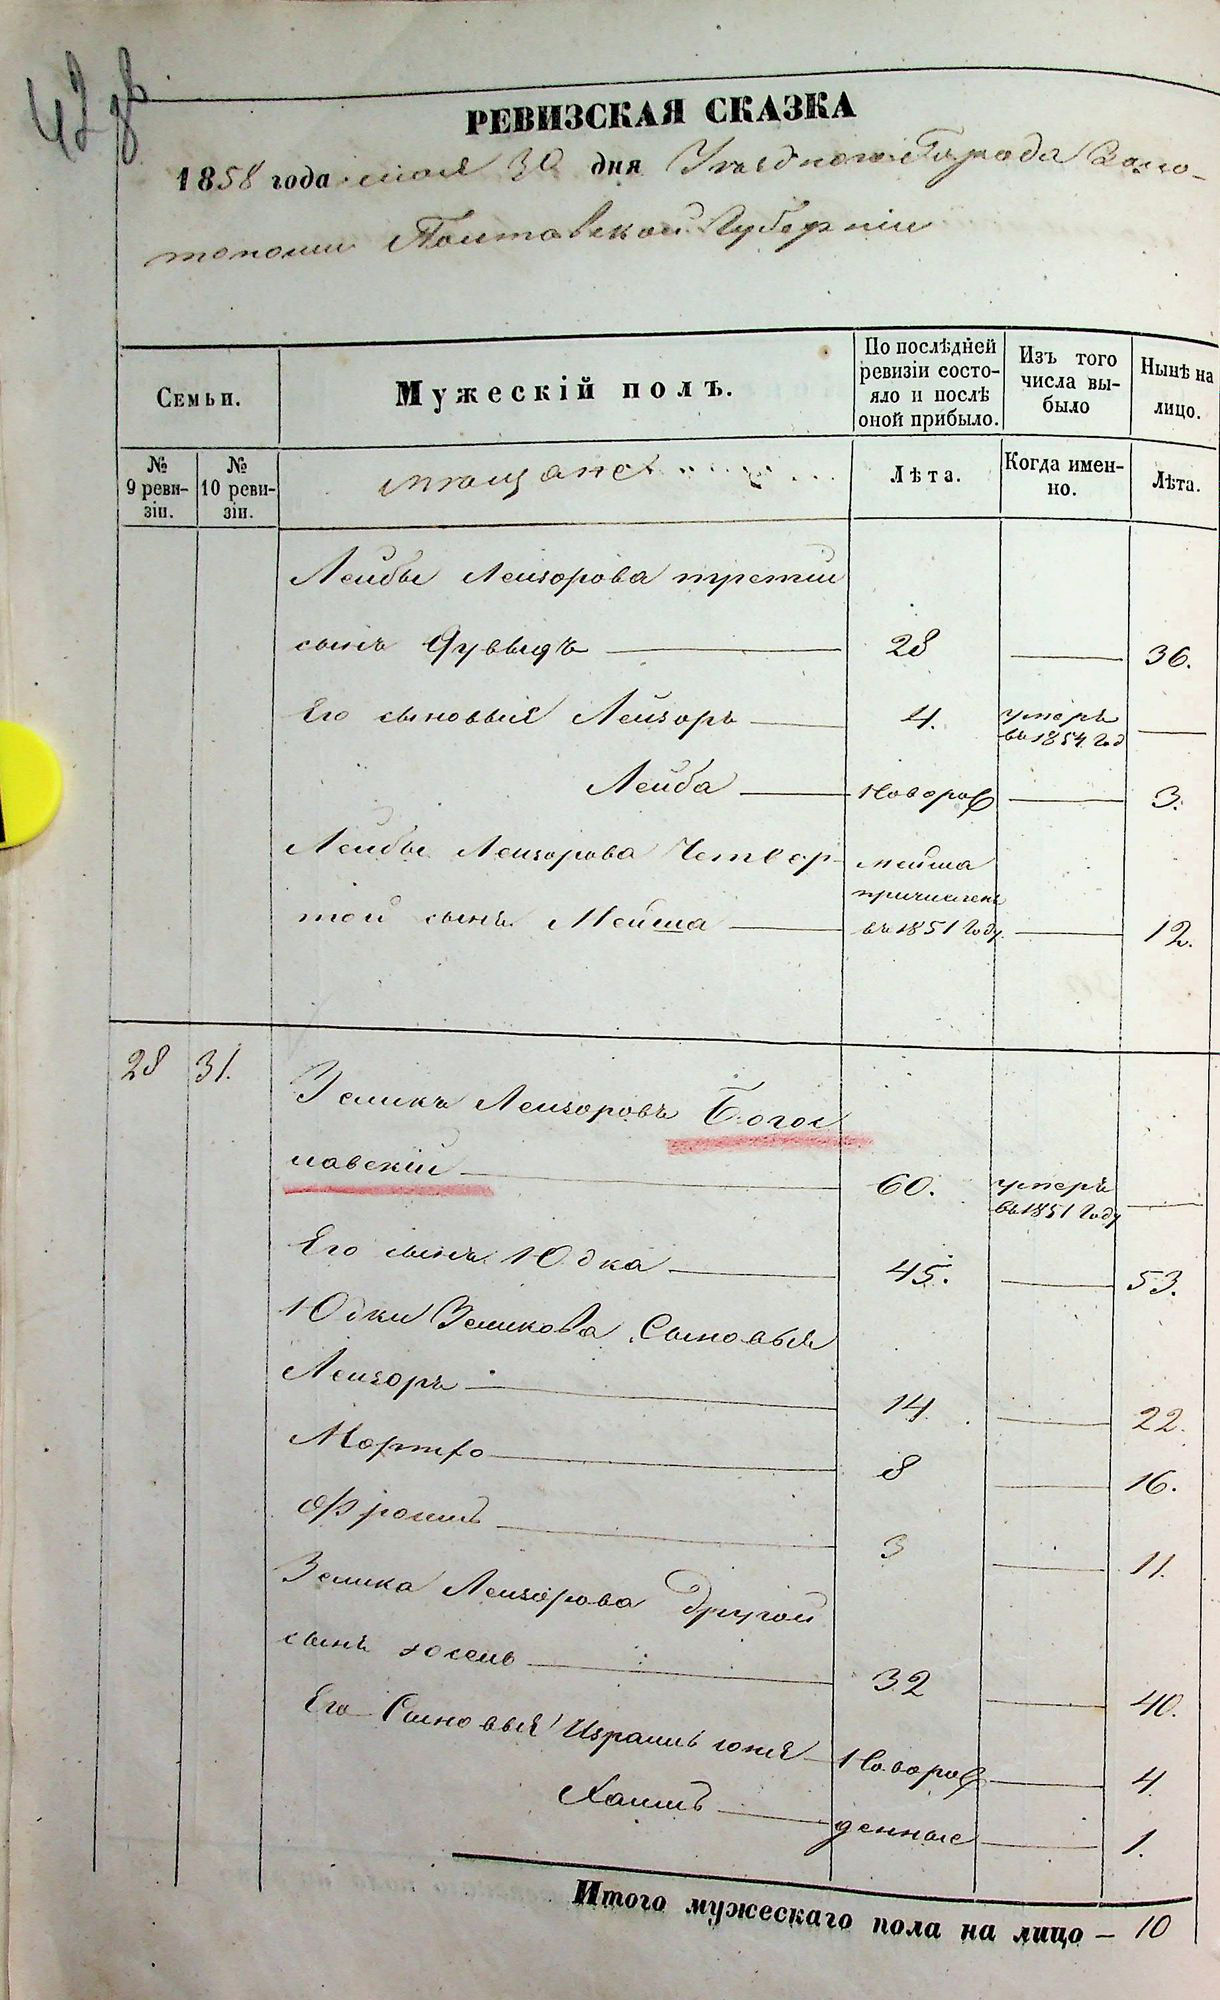 42 об
РЕВИЗСКАЯ СКАЗКА
1858 года мая 30 дня Уезднаго Города Золо-
тоноши Полтавской Губернiи
Семьи.
Мужескiй полъ.
По послѣдней ревизiи состо-яло и послѣ оной прибыло.
Изъ того числа вы-было
Нынѣ на лицо.
№ 9 реви-зiи.
№ 10 реви-зiи.
Лѣта.
Когда имен-но.
Лѣта.
Лейбы Лейзорова третiй
сынъ Дувыдъ 28 36.
Его сыновья Лейзоръ 4. умеръ въ 1854 год
Лейба новорож 3.
Лейбы Лейзорова Четвер-
той сынъ Мейша
Мейша причисленъ въ 1851 году. 12.
28 31.
Зеликъ Лейзоровъ Богос
лавскiй 60. умеръ въ 1851 году
Его сынъ Юдка 45. 53.
Юдки Зеликова Сыновья
Лейзоръ 14. 22.
Мортхо 8 16.
Фроимъ 3 11.
Зелика Лейзорова другой
сынъ Іосель 32 40.
Его Сыновья Израиль новорож 4
Хаимъ денные 1.
Итого мужескаго пола на лицо – 10